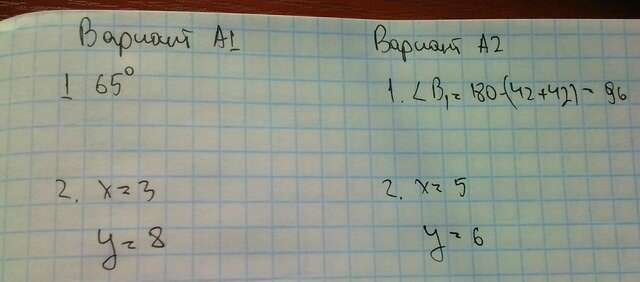 Вариант А1
1 65°
2. x = 3
y = 8
Вариант А2
1. ∠B₁ = 180-(42+42) = 96
2. x = 5
y = 6